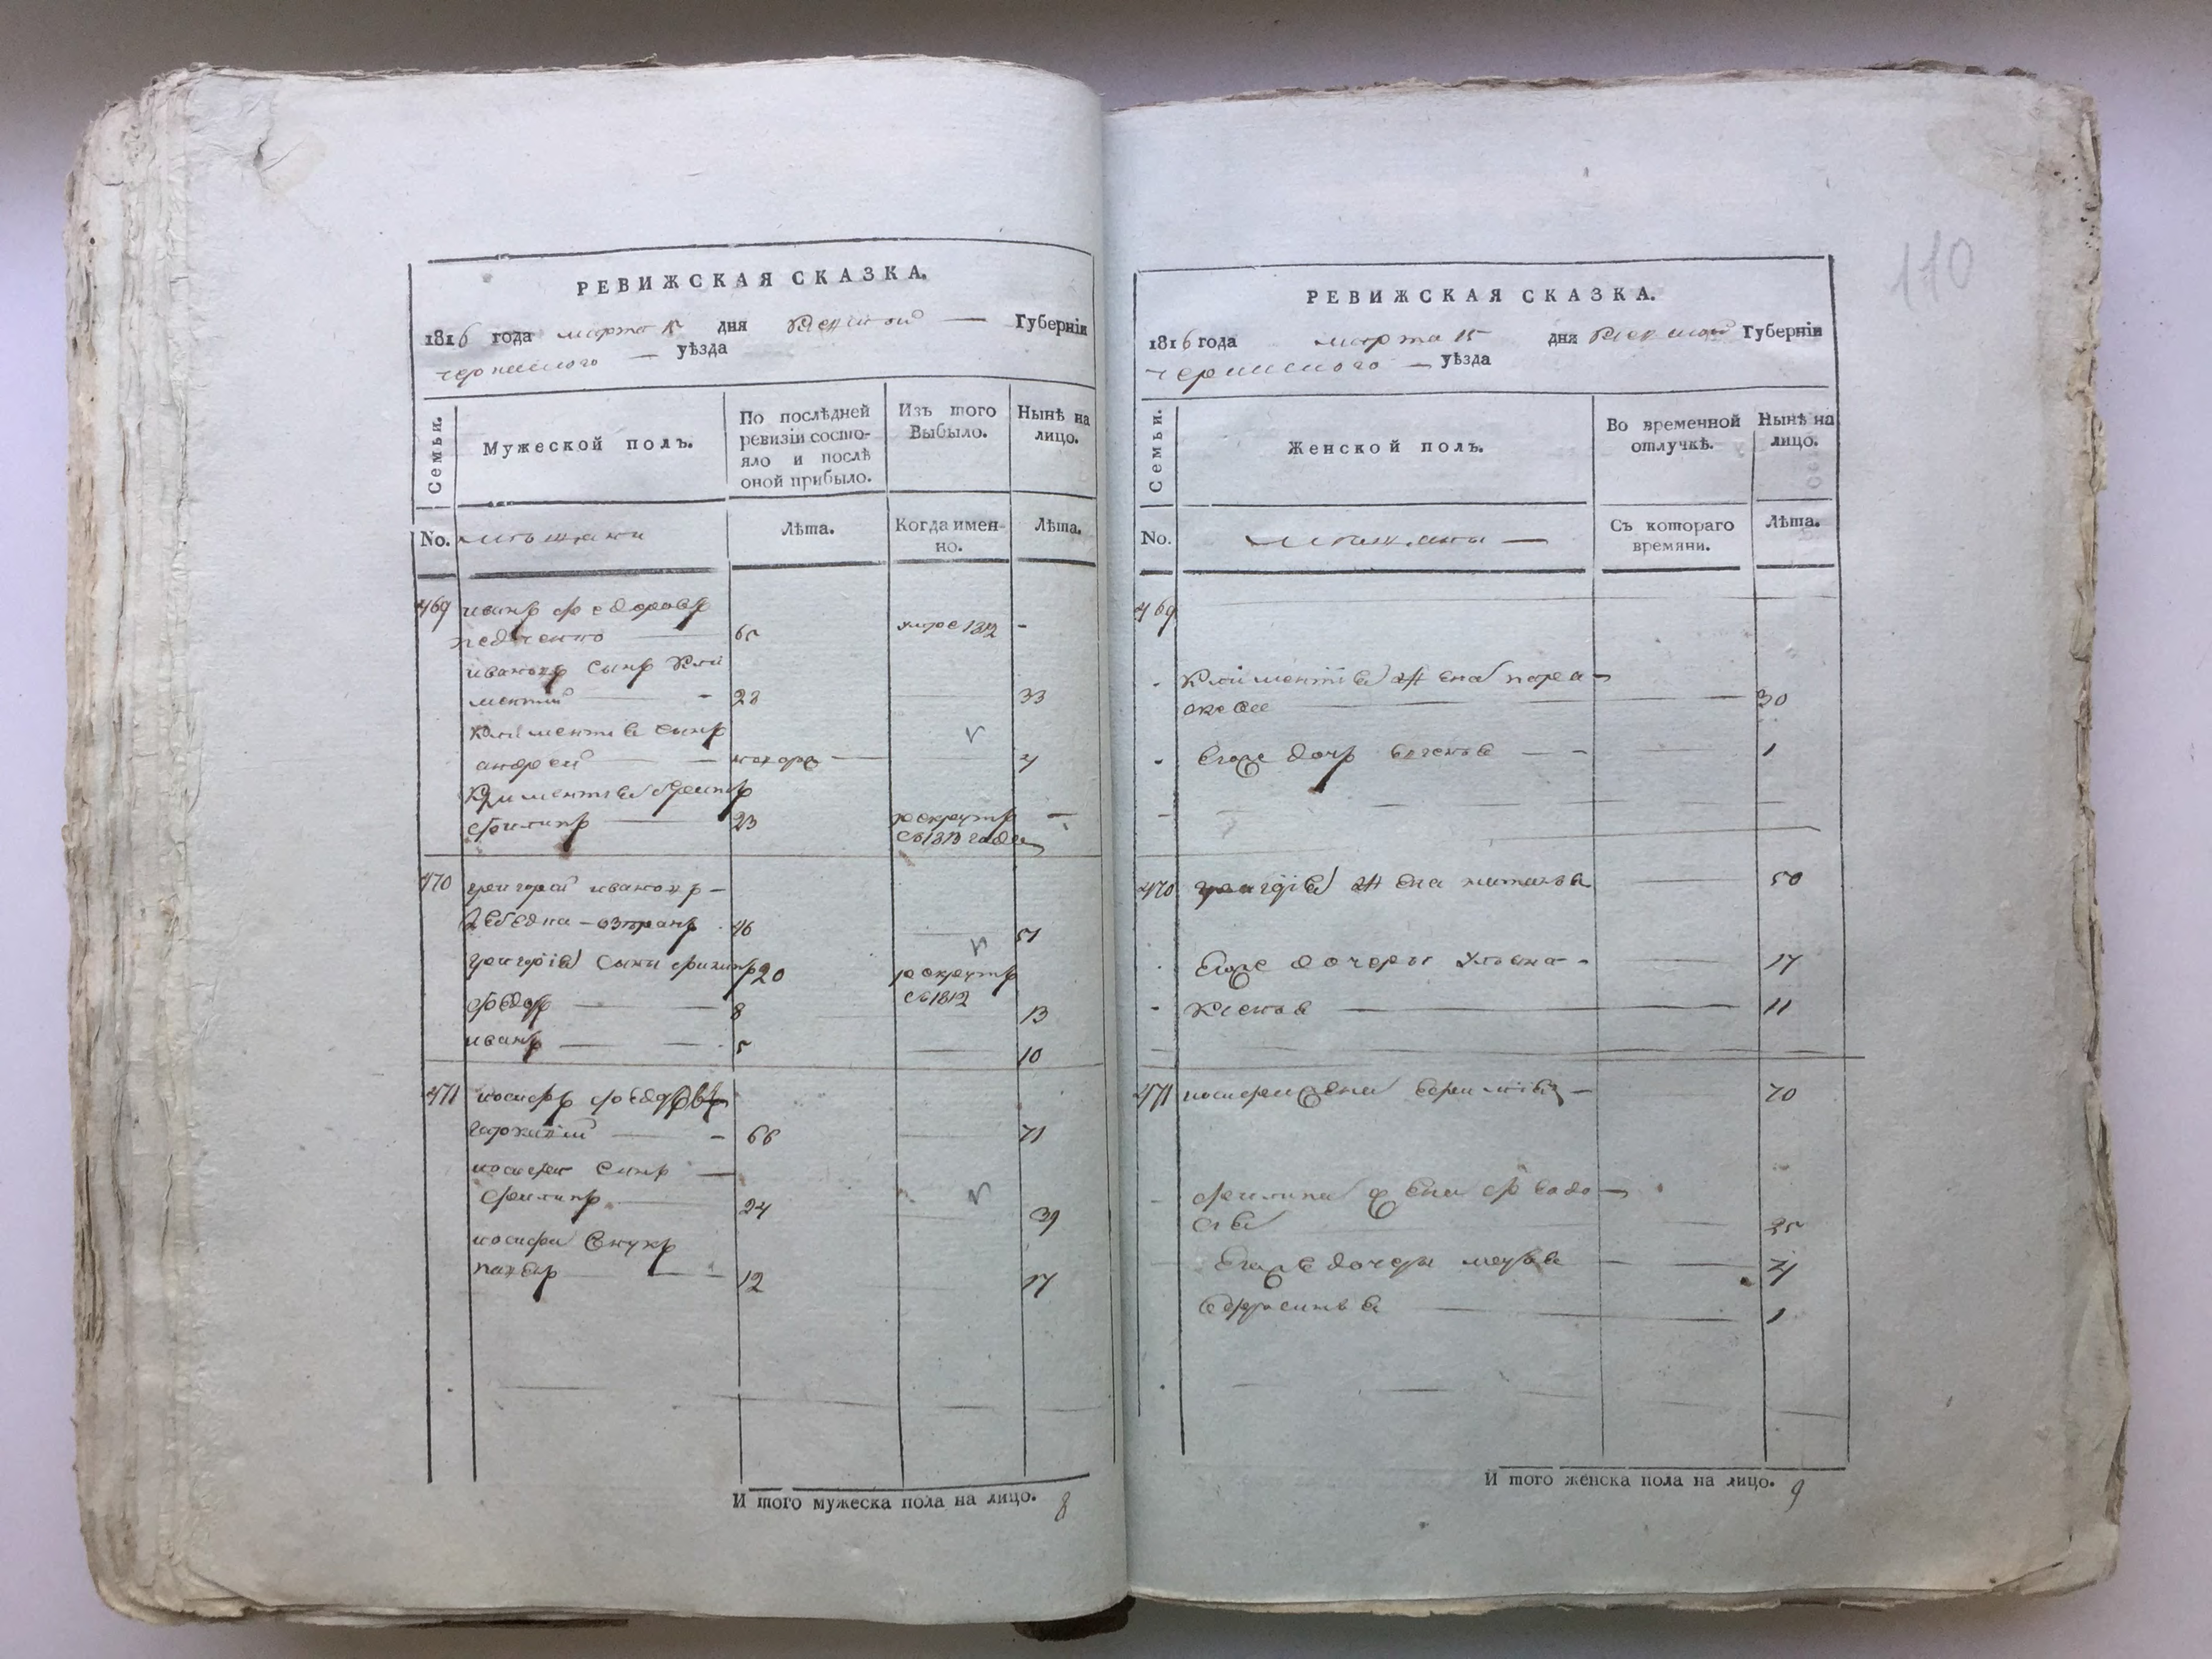 РЕВИЖСКАЯ СКАЗКА.
1816 года марта 15 дня Киевской Губерніи
уѣзда
Семьи.
Мужеской полъ.
По послѣдней ревизіи состо-
яло и послѣ
оной прибыло.
Изъ того
Выбыло.
Нынѣ на
лицо.
No.
мѣщани
Лѣта.
Когда имен-
но.
Лѣта.
469 иванъ федоровъ
65 умре 1812 -
ивановъ сынъ Кли
ментий 28 33
Климентія сынъ
андрей 4
Климентія
филипъ 23 рекрутъ -
съ 1813 года
470 григорей ивановъ
46 51
григорія сыни филипъ 20 рекрутъ
съ 1812
федоръ 8 13
иванъ 5 10
471 иосифъ федоровъ
66 71
иосифа синъ
филипъ 24 39
иосифа внукъ
павелъ 12 17
И того мужеска пола на лицо. 8
110
РЕВИЖСКАЯ СКАЗКА.
1816 года марта 15 дня Киевской Губерніи
уѣзда
Семьи.
Женской полъ.
Во временной
отлучкѣ.
Нынѣ на
лицо.
No.
мѣщаны
Съ котораго
времяни.
Лѣта.
469
Климентія жена пара
скева 30
Егоже дочъ 1
470 григорія жена 50
Егоже дочеры Ульяна 17
11
471 иосифа жена 70
филипа жена федо
сія 35
Егоже дочеры 4
Ефросинія 1
И того женска пола на лицо. 9